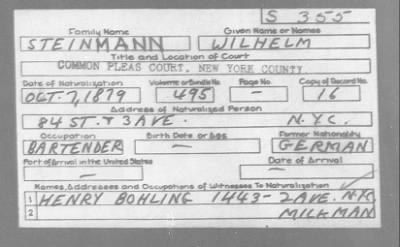 S 355
Family Name Given Name or Names
STEINMANN WILHELM
Title and Location of Court
COMMON PLEAS COURT, NEW YORK COUNTY
Date of Naturalization Volume or Bundle No. Page No. Copy of Record No.
OCT. 7, 1879 495 — 16
Address of Naturalized Person
84 ST. & 3 AVE. N.Y.C.
Occupation Birth Date or Age Former Nationality
BARTENDER GERMAN
Port of Arrival in the United States Date of Arrival
Names, Addresses and Occupations of Witnesses To Naturalization
1 HENRY BOHLING 1443 - 2 AVE. N.Y.C.
2 MILKMAN